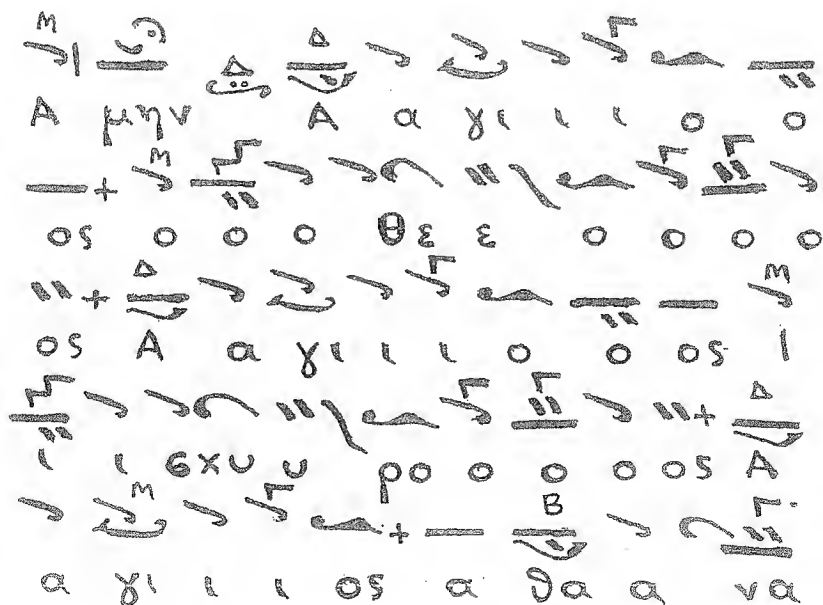 Α μην Α α γι ι ι ο ο
ος ο ο ο θε ε ο ο ο ο
ος Α α γι ι ι ο ο ος Ι
ι ι σχυ υ ρο ο ο ο ος Α
α γι ι ι ος α θα α να